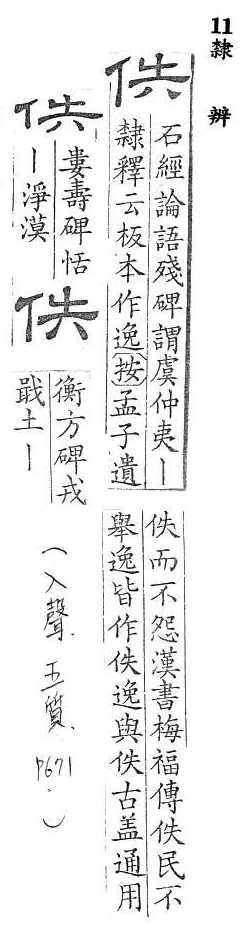 11 隸 辨
佚
石經論語殘碑謂虞仲夷丨
隸釋云板本作逸(按)孟子遺
佚而不怨漢書梅福傳佚民不
舉逸皆作佚逸與佚古盖通用
佚
婁壽碑恬
丨淨漠
佚
衡方碑戎
戢土丨
(入聲.五質.P671.)